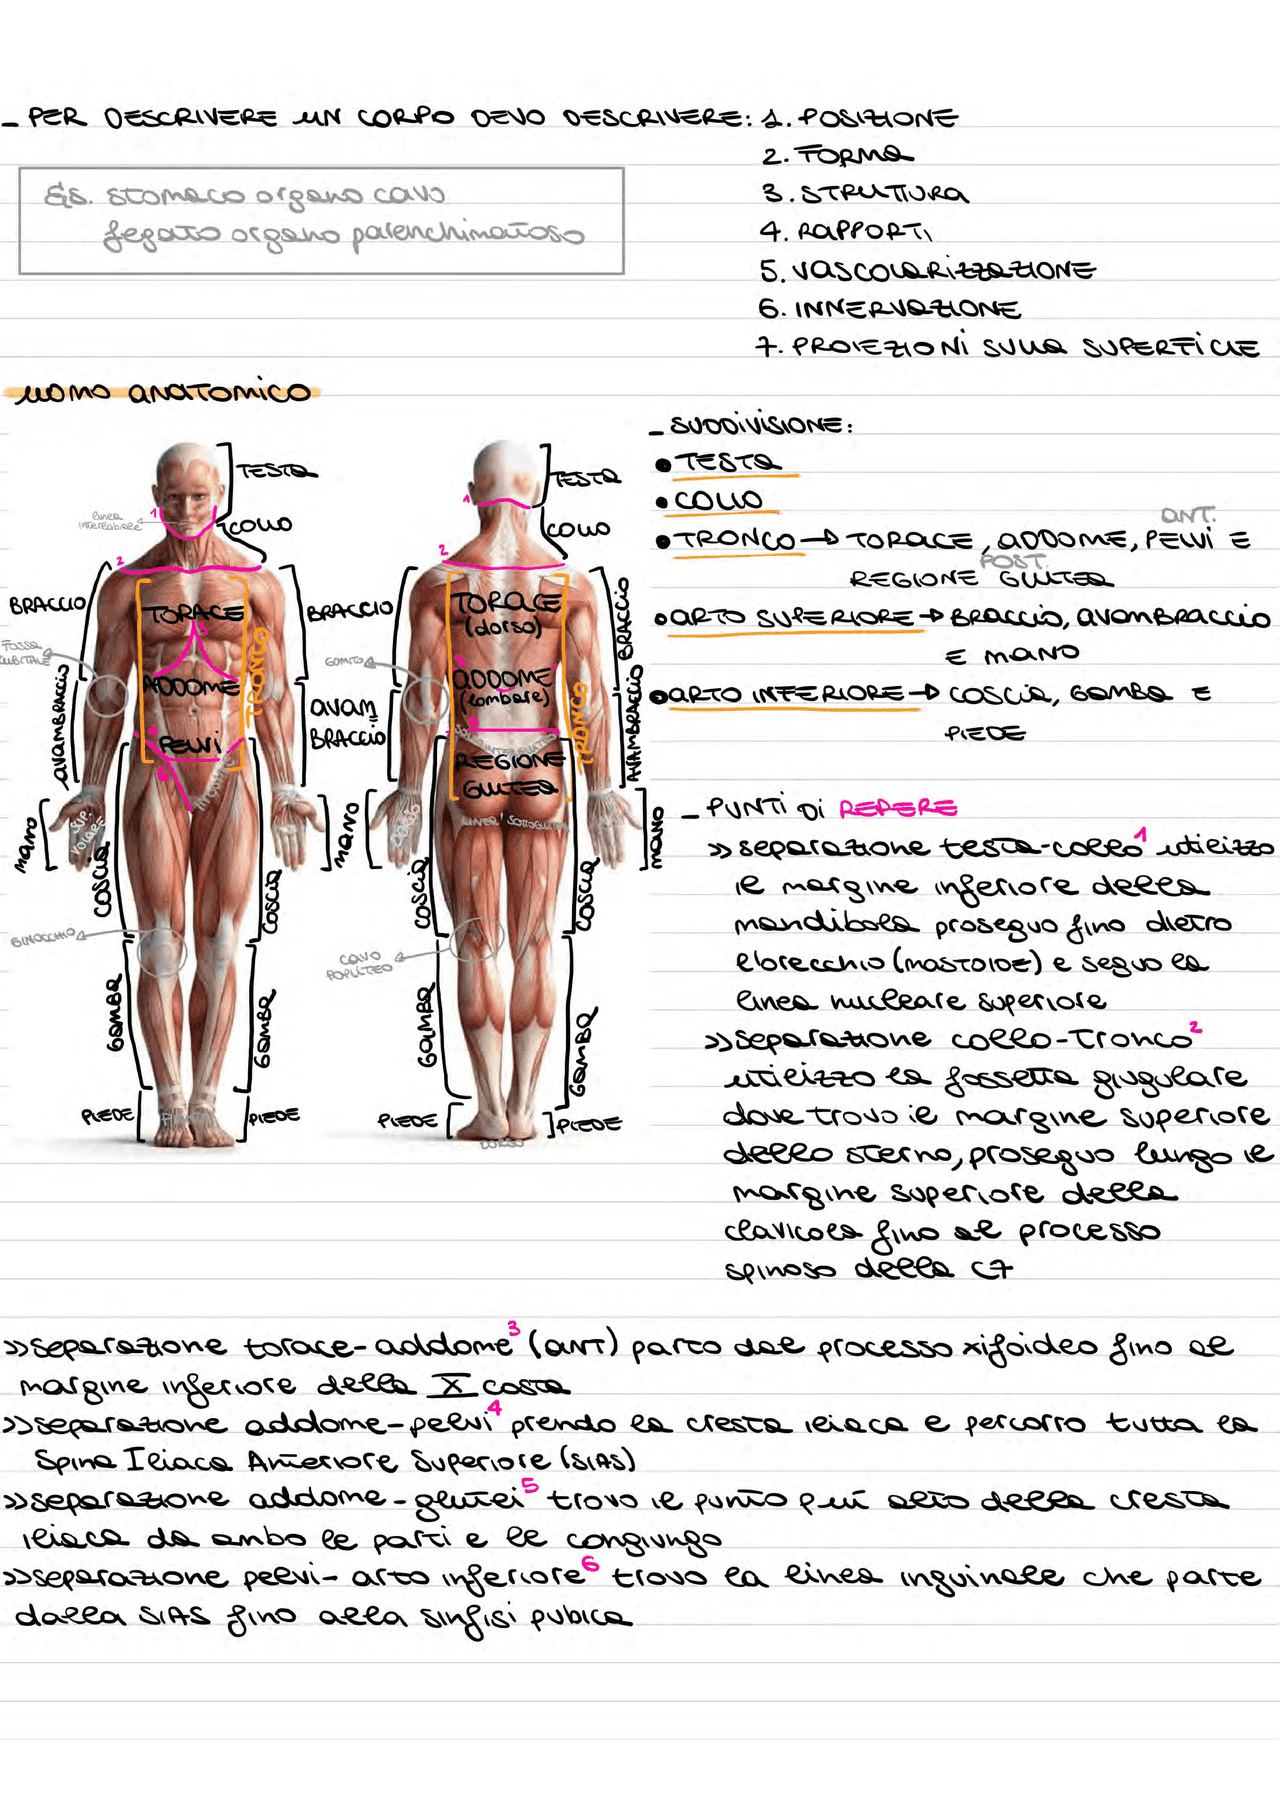 - PER DESCRIVERE UN CORPO DEVO DESCRIVERE: 1. POSIZIONE
2. FORMA
3. STRUTTURA
4. RAPPORTI
5. VASCOLARIZZAZIONE
6. INNERVAZIONE
7. PROIEZIONI SULLA SUPERFICIE
Es. stomaco organo cavo
fegato organo parenchimatoso
UOMO ANATOMICO
TESTA
1
linea
COLLO
2
BRACCIO
BRACCIO
TORACE
3
FOSSA
CUBITALE
ADDOME
TRONCO
AVAMBRACCIO
AVAM=
BRACCIO
4
PELVI
6
MANO
SUP.
VOLARE
MANO
COSCIA
COSCIA
GINOCCHIO
GAMBA
GAMBA
PIEDE
PIEDE
TESTA
1
COLLO
2
BRACCIO
TORACE
(dorso)
GOMITO
ADDOME
(lombare)
TRONCO
AVAMBRACCIO
5
REGIONE
GLUTEA
MANO
COSCIA
COSCIA
CAVO
POPLITEO
GAMBA
GAMBA
PIEDE
PIEDE
DORSO
- SUDDIVISIONE:
• TESTA
• COLLO
ANT.
• TRONCO → TORACE, ADDOME, PELVI E
POST.
REGIONE GLUTEA
• ARTO SUPERIORE → BRACCIO, AVAMBRACCIO
E MANO
• ARTO INFERIORE → COSCIA, GAMBA E
PIEDE
- PUNTI DI REPERE
>> separazione testa-collo¹ utilizzo
il margine inferiore della
mandibola proseguo fino dietro
l'orecchio (MASTOIDE) e seguo la
linea nucleare superiore
>> separazione collo-tronco²
utilizzo la fossetta giugulare
dove trovo il margine superiore
dello sterno, proseguo lungo il
margine superiore della
clavicola fino al processo
spinoso della C7
>> separazione torace-addome³ (ANT) parto dal processo xifoideo fino al
margine inferiore della X costa
>> separazione addome-pelvi⁴ prendo la cresta iliaca e percorro tutta la
Spina Iliaca Anteriore Superiore (SIAS)
>> separazione addome-glutei⁵ trovo il punto più alto della cresta
iliaca da ambo le parti e le congiungo
>> separazione pelvi-arto inferiore⁶ trovo la linea inguinale che parte
dalla SIAS fino alla sinfisi pubica